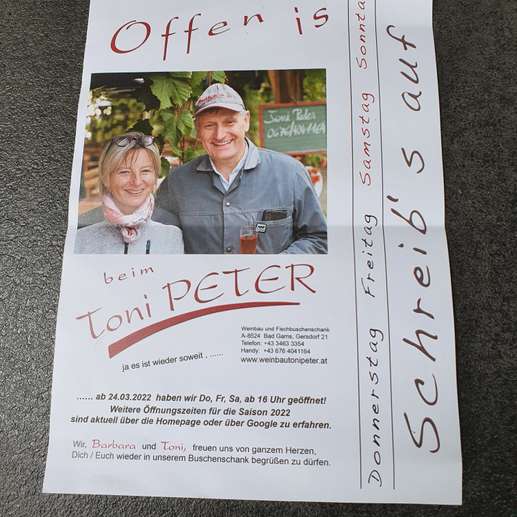 Offen is
Toni Peter
beim
Toni PETER
Weinbau und Fischbuschenschank
A-8524 Bad Gams, Gersdorf 21
Telefon: +43 3463 3354
Handy: +43 676 4041164
www.weinbautonipeter.at
ja es ist wieder soweit , ......
...... ab 24.03.2022 haben wir Do, Fr, Sa, ab 16 Uhr geöffnet!
Weitere Öffnungszeiten für die Saison 2022
sind aktuell über die Homepage oder über Google zu erfahren.
Wir, Barbara und Toni, freuen uns von ganzem Herzen,
Dich / Euch wieder in unserem Buschenschank begrüßen zu dürfen.
Donnerstag Freitag Samstag Sonntag
Schreib's auf